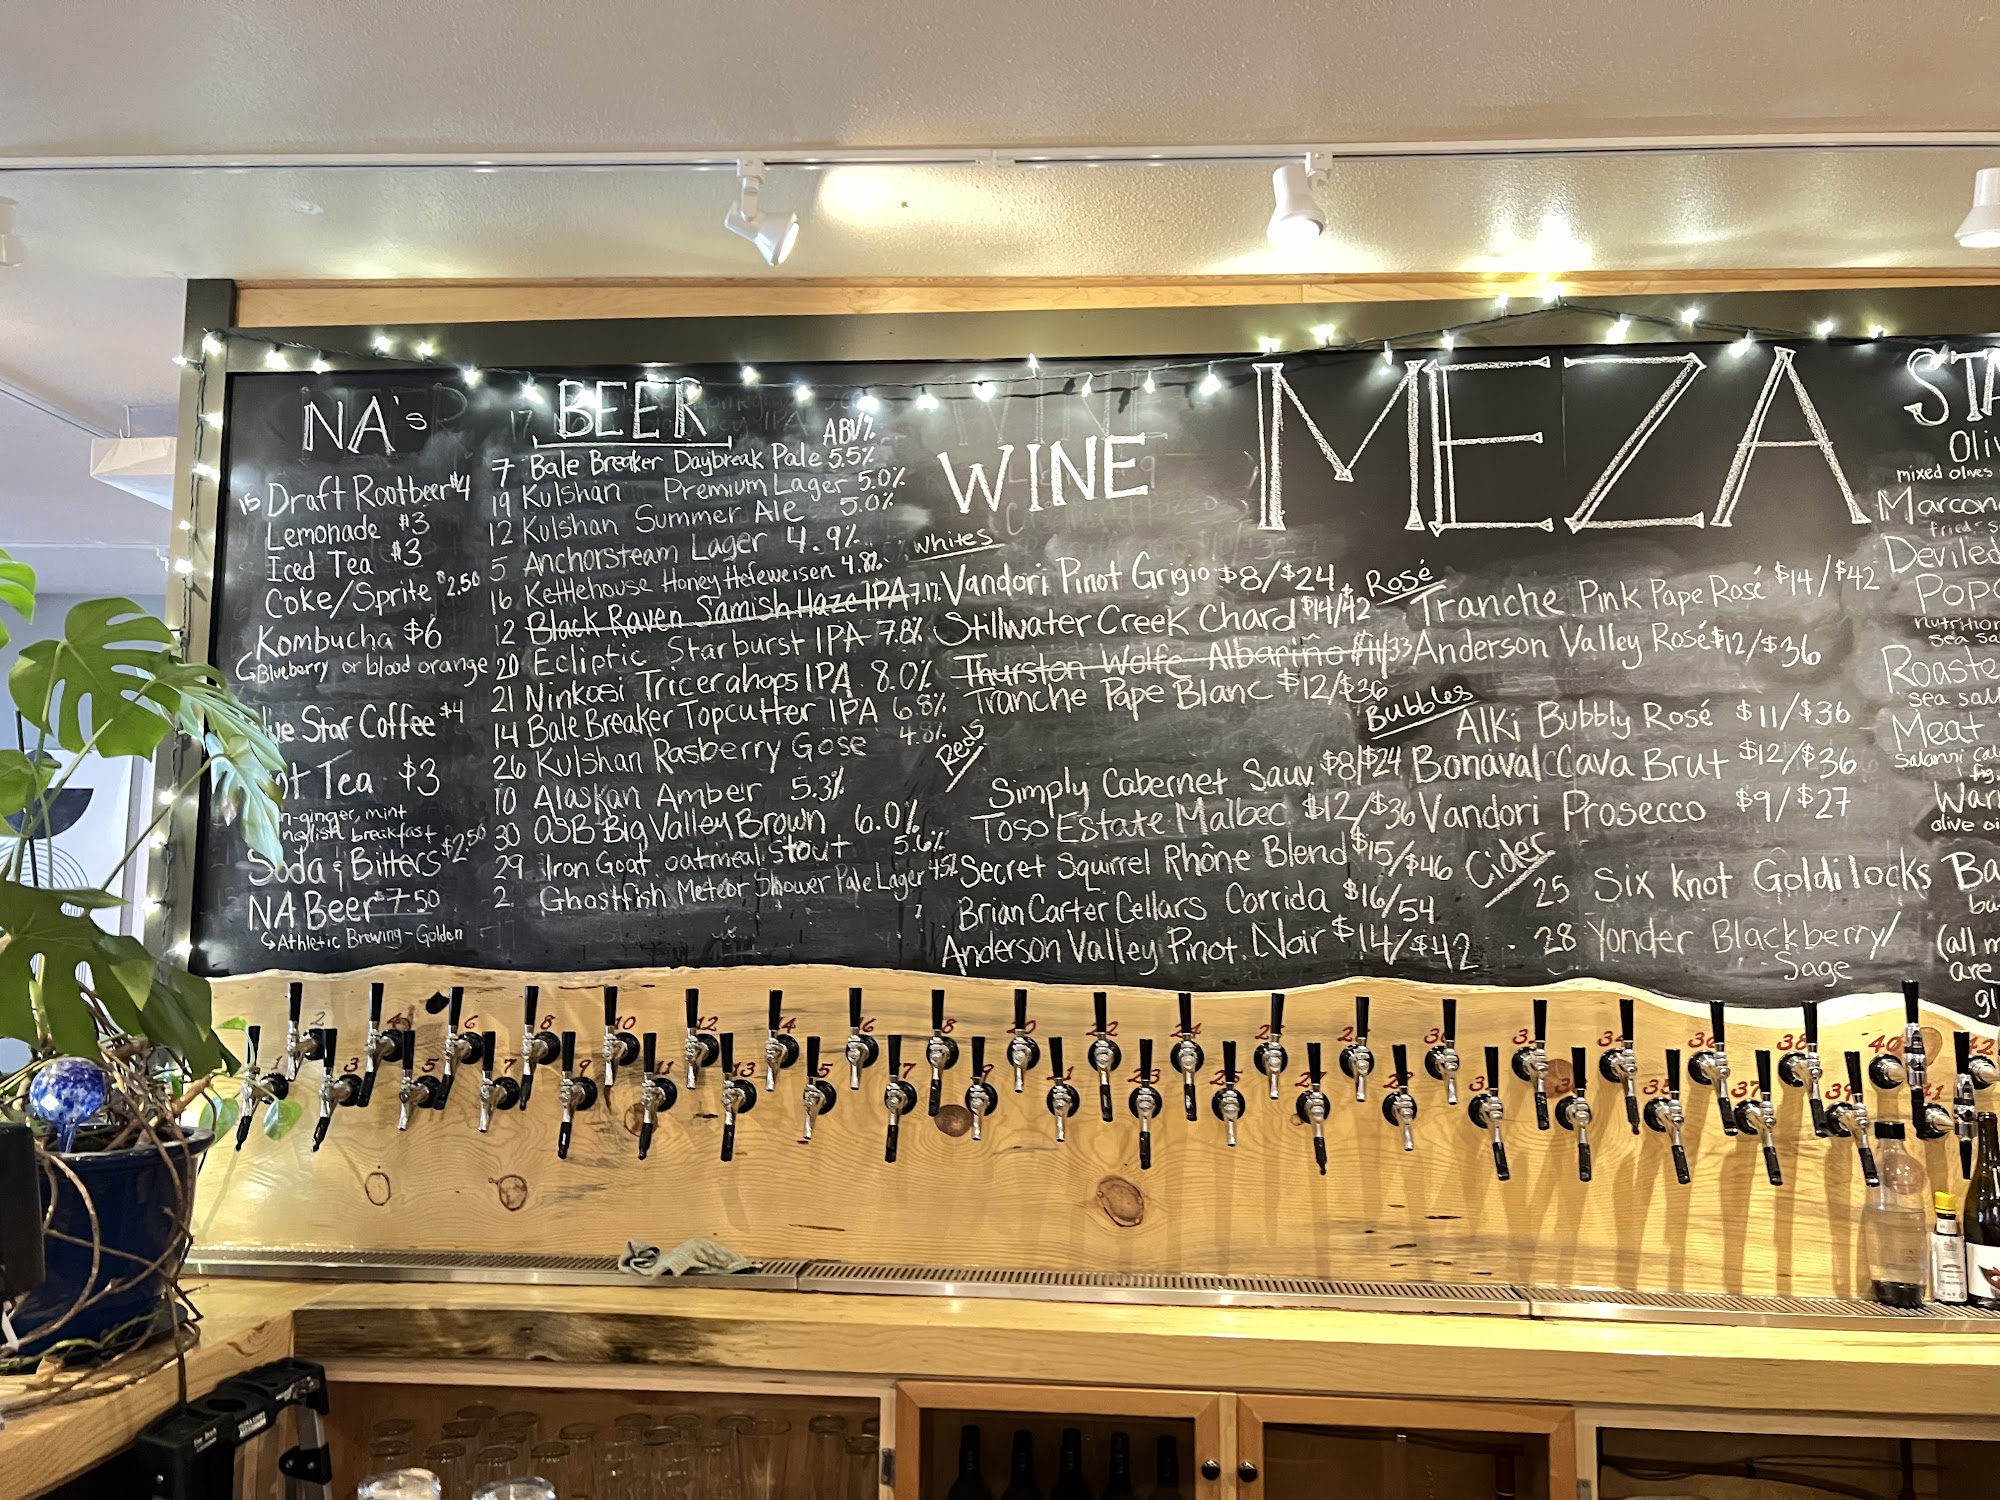 NA's
15 Draft Rootbeer $4
Lemonade $3
Iced Tea $3
Coke/Sprite $2.50
Kombucha $6
Blueberry or blood orange
Star Coffee $4
Tea $3
ginger, mint
breakfast
Soda & Bitters $2.50
NA Beer $7.50
Athletic Brewing - Golden
BEER
ABV%
7 Bale Breaker Daybreak Pale 5.5%
19 Kulshan Premium Lager 5.0%
12 Kulshan Summer Ale 5.0%
5 Anchorsteam Lager 4.9%
16 Kettlehouse Honey Hefeweisen 4.8%
12 Black Raven Samish Haze IPA
20 Ecliptic Starburst IPA 7.8%
21 Ninkasi Tricerahops IPA 8.0%
14 Bale Breaker Topcutter IPA 6.8%
26 Kulshan Rasberry Gose 4.8%
10 Alaskan Amber 5.3%
30 OSB Big Valley Brown 6.0%
29 Iron Goat oatmeal stout 5.6%
2 Ghostfish Meteor Shower Pale Lager 4.5%
WINE
Whites
Vandori Pinot Grigio $8/$24
Stillwater Creek Chard $14/42
Thurston Wolfe Albariño $11/33
Tranche Pape Blanc $12/$36
Reds
Simply Cabernet Sauv. $8/$24
Toso Estate Malbec $12/$36
Secret Squirrel Rhône Blend $15/$46
Brian Carter Cellars Corrida $16/54
Anderson Valley Pinot Noir $14/$42
MEZA
Rosé
Tranche Pink Pape Rosé $14/$42
Anderson Valley Rosé $12/$36
Bubbles
Alki Bubbly Rosé $11/$36
Bonaval Cava Brut $12/$36
Vandori Prosecco $9/$27
Cider
25 Six Knot Goldilocks
28 Yonder Blackberry/
Sage
STA
Oliv
mixed olives
Marcon
fried
Deviled
Pop
nutrition
sea sa
Roaste
sea sal
Meat
fig,
War
olive oi
Ba
bu
(all m
are
gl
2 4 6 8 10 12 14 16 20 22 24 32 34 36 38 40 42
1 3 5 7 9 11 13 17 23 25 27 35 37 39 41